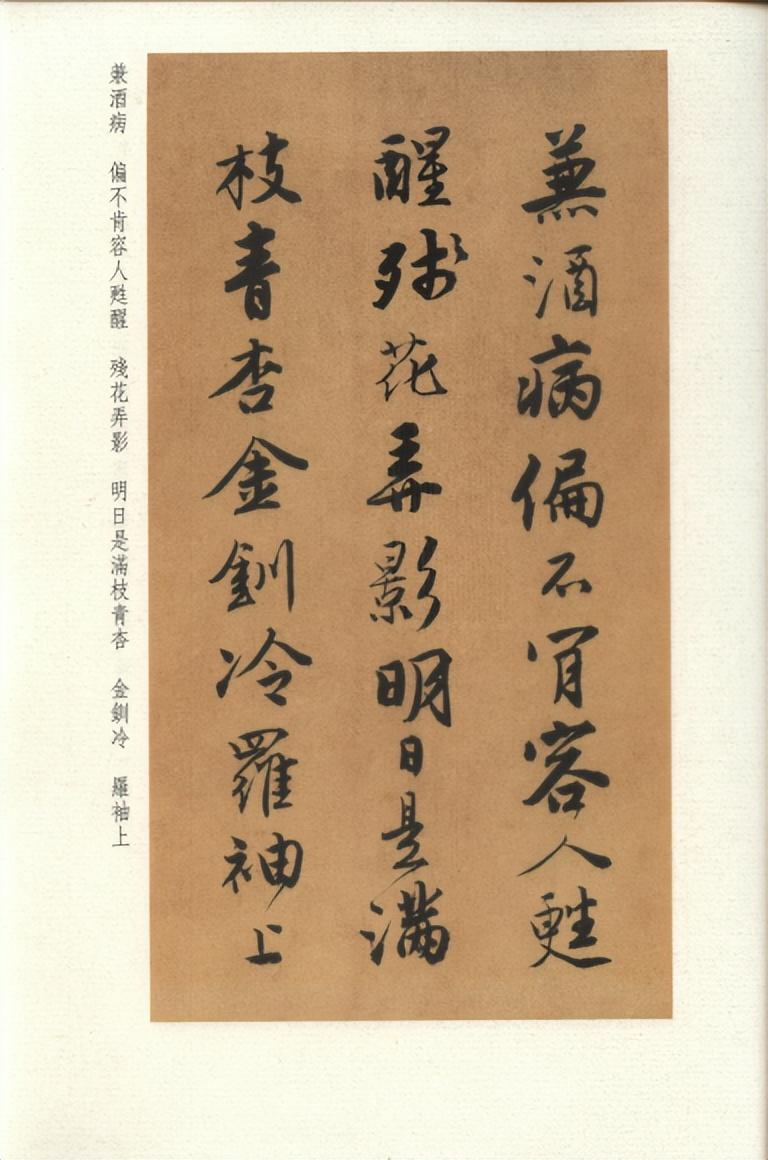 兼酒病偏不肯容人甦
醒殘花弄影明日是滿
枝青杏金釧冷羅袖上
兼酒病　偏不肯容人甦醒　殘花弄影　明日是滿枝青杏　金釧冷　羅袖上